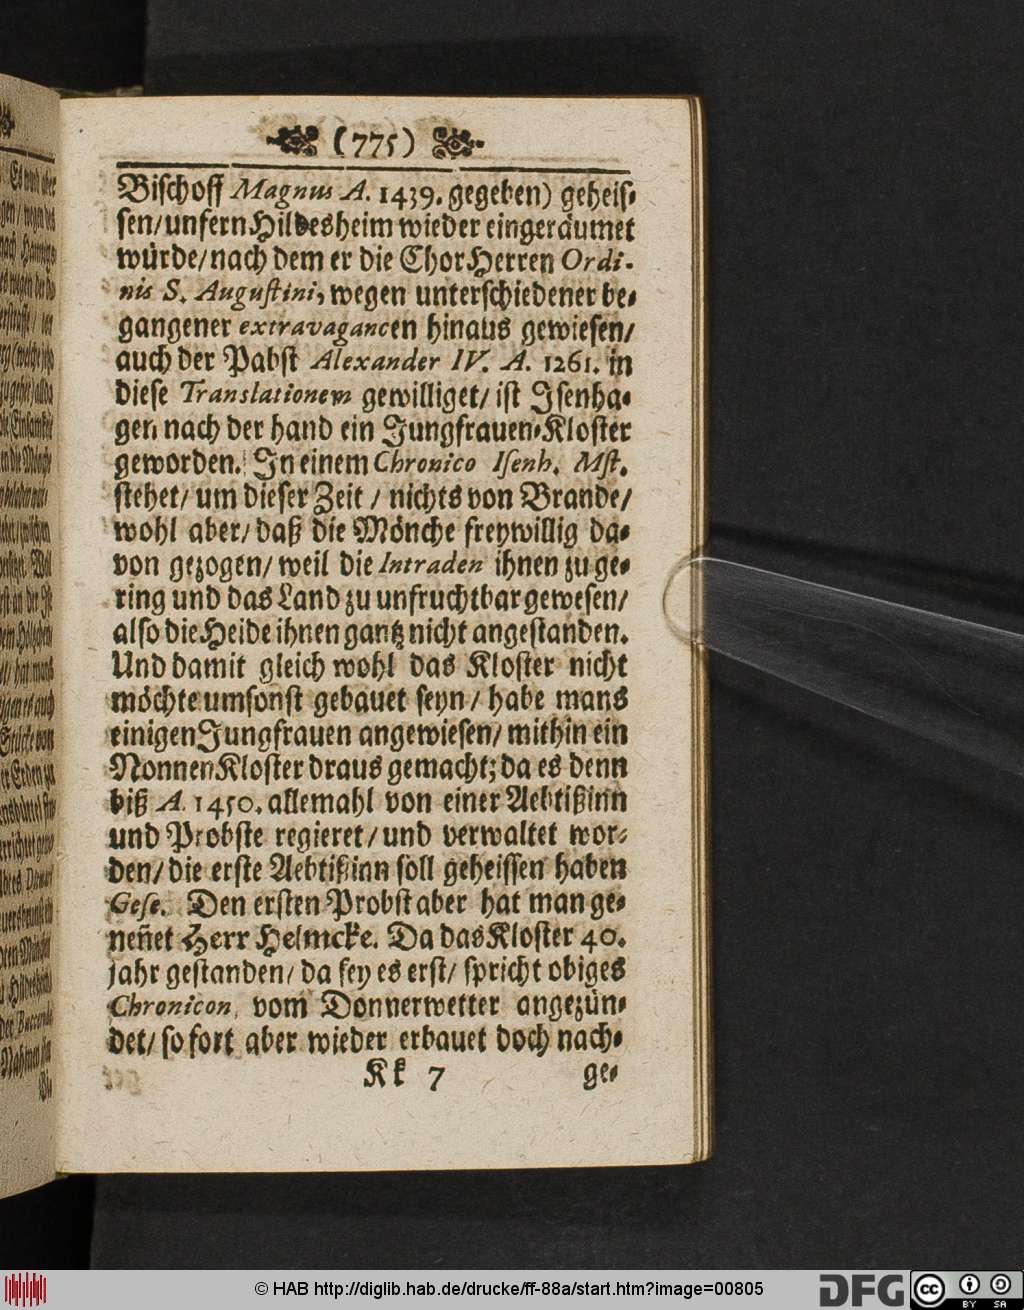 (775)
Bischoff Magnus A. 1439. gegeben) geheis-
sen/ unfern Hildesheim wieder eingeräumet
würde/ nach dem er die ChorHerren Ordi-
nis S. Augustini, wegen unterschiedener be-
gangener extravagancen hinaus gewiesen/
auch der Pabst Alexander IV. A. 1261. in
diese Translationem gewilliget/ ist Isenha-
gen nach der hand ein Jungfrauen-Kloster
geworden. In einem Chronico Isenh. Mst.
stehet/ um dieser Zeit / nichts von Brande/
wohl aber/ daß die Mönche freywillig da-
von gezogen/ weil die Intraden ihnen zu ge-
ring und das Land zu unfruchtbar gewesen/
also die Heide ihnen gantz nicht angestanden.
Und damit gleich wohl das Kloster nicht
möchte umsonst gebauet seyn/ habe mans
einigen Jungfrauen angewiesen/ mithin ein
NonnenKloster draus gemacht; da es denn
biß A. 1450. allemahl von einer Aebtißinn
und Probste regieret/ und verwaltet wor-
den/ die erste Aebtißinn soll geheissen haben
Gese. Den ersten Probst aber hat man ge-
nen̄et Herr Helmcke. Da das Kloster 40.
jahr gestanden/ da sey es erst/ spricht obiges
Chronicon, vom Donnerwetter angezün-
det/ so fort aber wieder erbauet doch nach-
Kk 7 ge-
© HAB http://diglib.hab.de/drucke/ff-88a/start.htm?image=00805
DFG
cc BY SA